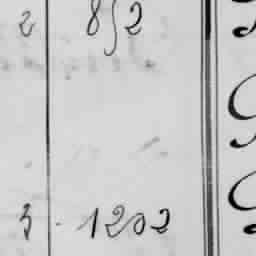 2 852
3 · 1203